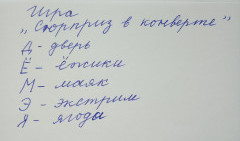 Игра
„Сюрприз в конверте"
Д - дверь
Ё - ёжики
М - маяк
Э - экстрим
Я - ягоды